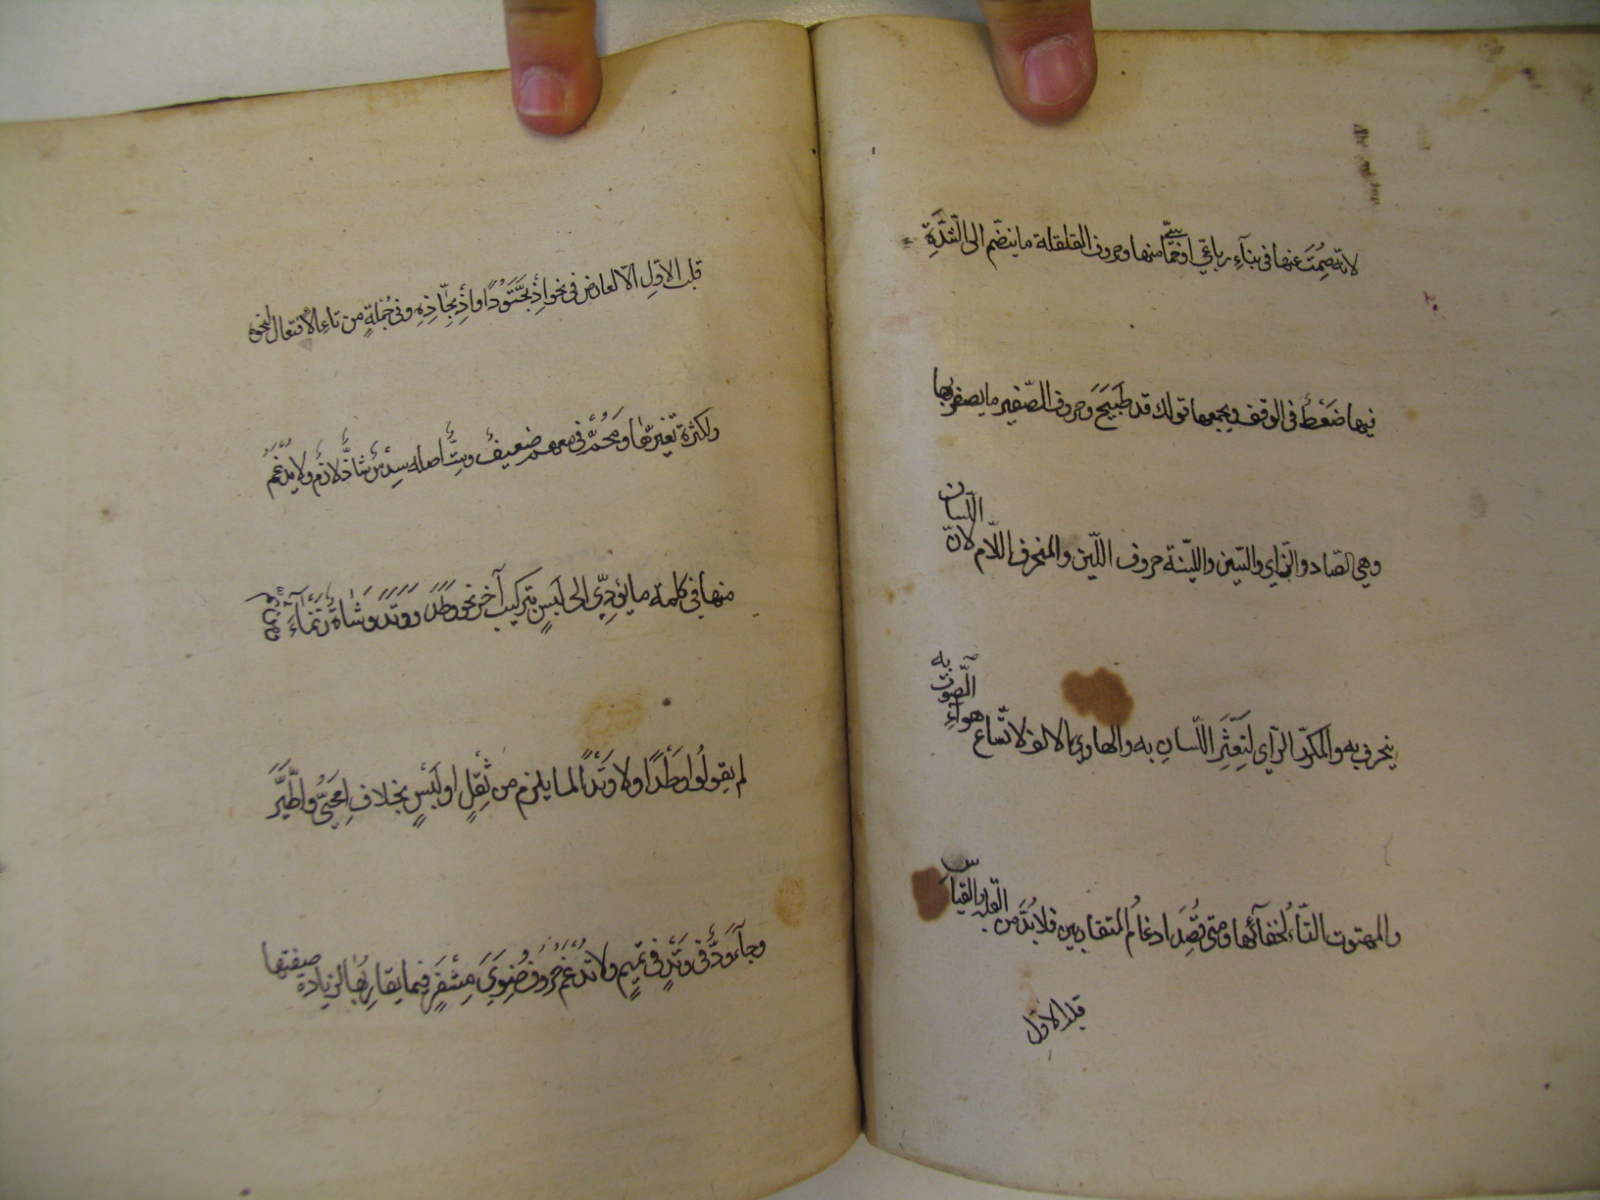 لانه صُمِتَ عنها فى بناءِ رباعىّ او خماسىّ منها وحروف القلقلة ما ينضّم الى الشدّةِ
فيها ضَغْطٌ فى الوقف ويجمعها قولك قد طَبَجَ وحروف الصّفير ما يصفر بها
وهى الصاد والزاى والسّين واللّينة حروف اللّين والمنحرف اللّام لانّ اللّسان
ينحرف به والمكرّر الرّاى لتَعَثّرِ اللّسانِ به والهاوى الالف لاتّساع هواءِ الصّوت به
والمهتوت التّاءُ لخفآئها ومتى قُصِدَ ادغامُ المتقاربين فلا بُدَّ من القلب والقياس
قلب الاوّل
قلب الاوّلِ الّا لعارض فى نحو اِذْبَحَّتُودًا واِذْبَحَّاذِهِ وفى جُملةٍ من تاءِ الافتعال لنحوه
ولكثرة تغيّرها ومَحُّمْ فى معهم ضعيفٌ وسِتٌّ اصله سِدْسٌ شاذٌّ لازمٌ ولا يُدغَمُ
منها فى كلمة ما يؤدّى الى لَبسٍ بتركيب آخر نحو وَطَدَ ووَتَدَ وشَاة زَنْمَاءَ
لم يقولُوا وَطْدًا ولا وَتْدًا لما يلزم من ثِقَلٍ او لَبْسٍ بخلاف اِمَّحَىٰ واطَّيَّرَ
وجآءَ وَدٌّ فى وَتَدٍ فى تميمٍ ولا تُدْغَمُ حروف ضَوِىَ مِشْفَرٍ فيما يقاربُها لزيادة صفتها